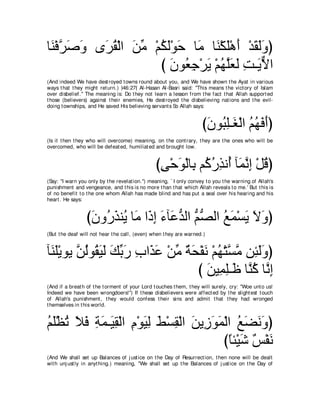 وَلَقَدْ أَهْلَكْنَا مَا حَوْلَكُمْ مِّنَ الْقُرَى وَصَرَّفْنَا)
( الاٌّيَـتِ لَعَلَّهُمْ يَرْجِعُونَ
(And indeed We have destroyed towns round about you, and We have shown the Ayat in various
ways that they might return.) )46:27( Al-Hasan Al-Basri said: "This means the victory of Islam
over disbelief.'' The meaning is: Do they not learn a lesson from the fact that Allah supported
those (believers) against their enemies, He destroyed the disbelieving nations and the evil-
doing townships, and He saved His believing servants So Allah says:
(أَفَهُمُ الْغَـلِبُونَ)
(Is it then they who will overcome) meaning, on the contrary, they are the ones who will be
overcomed, who will be defeated, humiliated and brought low.
(قُلْ إِنَّمَآ أُنذِرُكُم بِالْوَحْىِ)
(Say: "I warn you only by the revelation.") meaning, `I only convey to you the warning of Allah's
punishment and vengeance, and this is no more than that which Allah reveals to me.' But this is
of no benefit to the one whom Allah has made blind and has put a seal over his hearing and his
heart. He says:
(وَلاَ يَسْمَعُ الصُّمُّ الدُّعَآءَ إِذَا مَا يُنذَرُونَ)
(But the deaf will not hear the call, (even) when they are warned.)
(وَلَئِن مَّسَّتْهُمْ نَفْحَةٌ مِّنْ عَذَابِ رَبِّكَ لَيَقُولُنَّ يويْلَنَآ
إِنَّا كُنَّا ظَـلِمِينَ )
(And if a breath of the torment of your Lord touches them, they will surely, cry: "Woe unto us!
Indeed we have been wrongdoers!'') If these disbelievers were affected by the slightest touch
of Allah's punishment, they would confess their sins and admit that they had wronged
themselves in this world.
(وَنَضَعُ الْمَوَزِينَ الْقِسْطَ لِيَوْمِ الْقِيَـمَةِ فَلاَ تُظْلَمُ
نَفْسٌ شَيْئاً)
(And We shall set up Balances of justice on the Day of Resurrection, then none will be dealt
with unjustly in anything.) meaning, "We shall set up the Balances of justice on the Day of